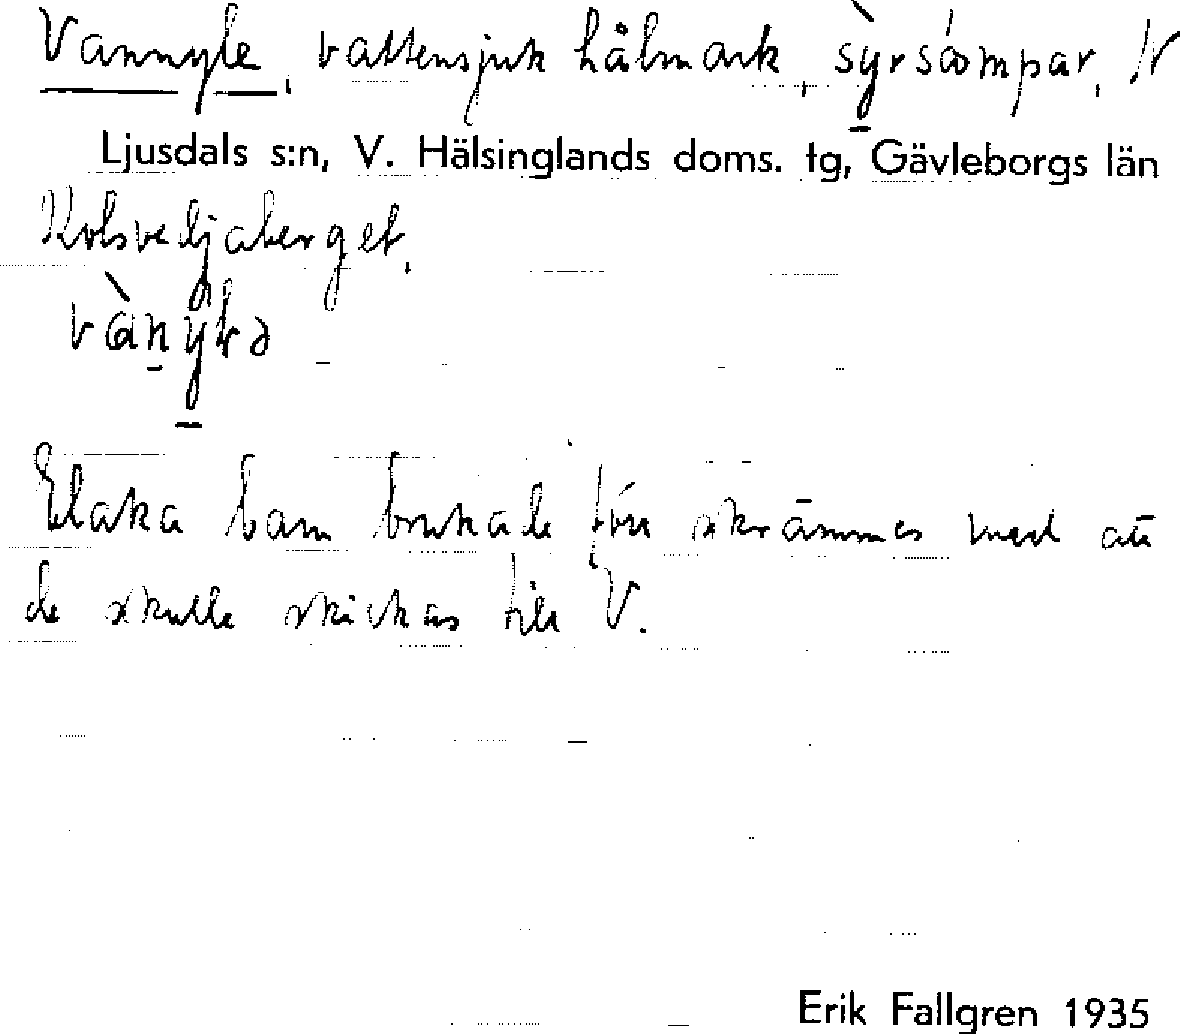 Vannyle, vattensjuk hålmark, syrsómpar, N
Ljusdals s:n, V. Hälsinglands doms. tg, Gävleborgs län
Kolsveljaberget.
Elaka barn brukade förr skrämmas med att
de skulle skickas till V.
Erik Fallgren 1935